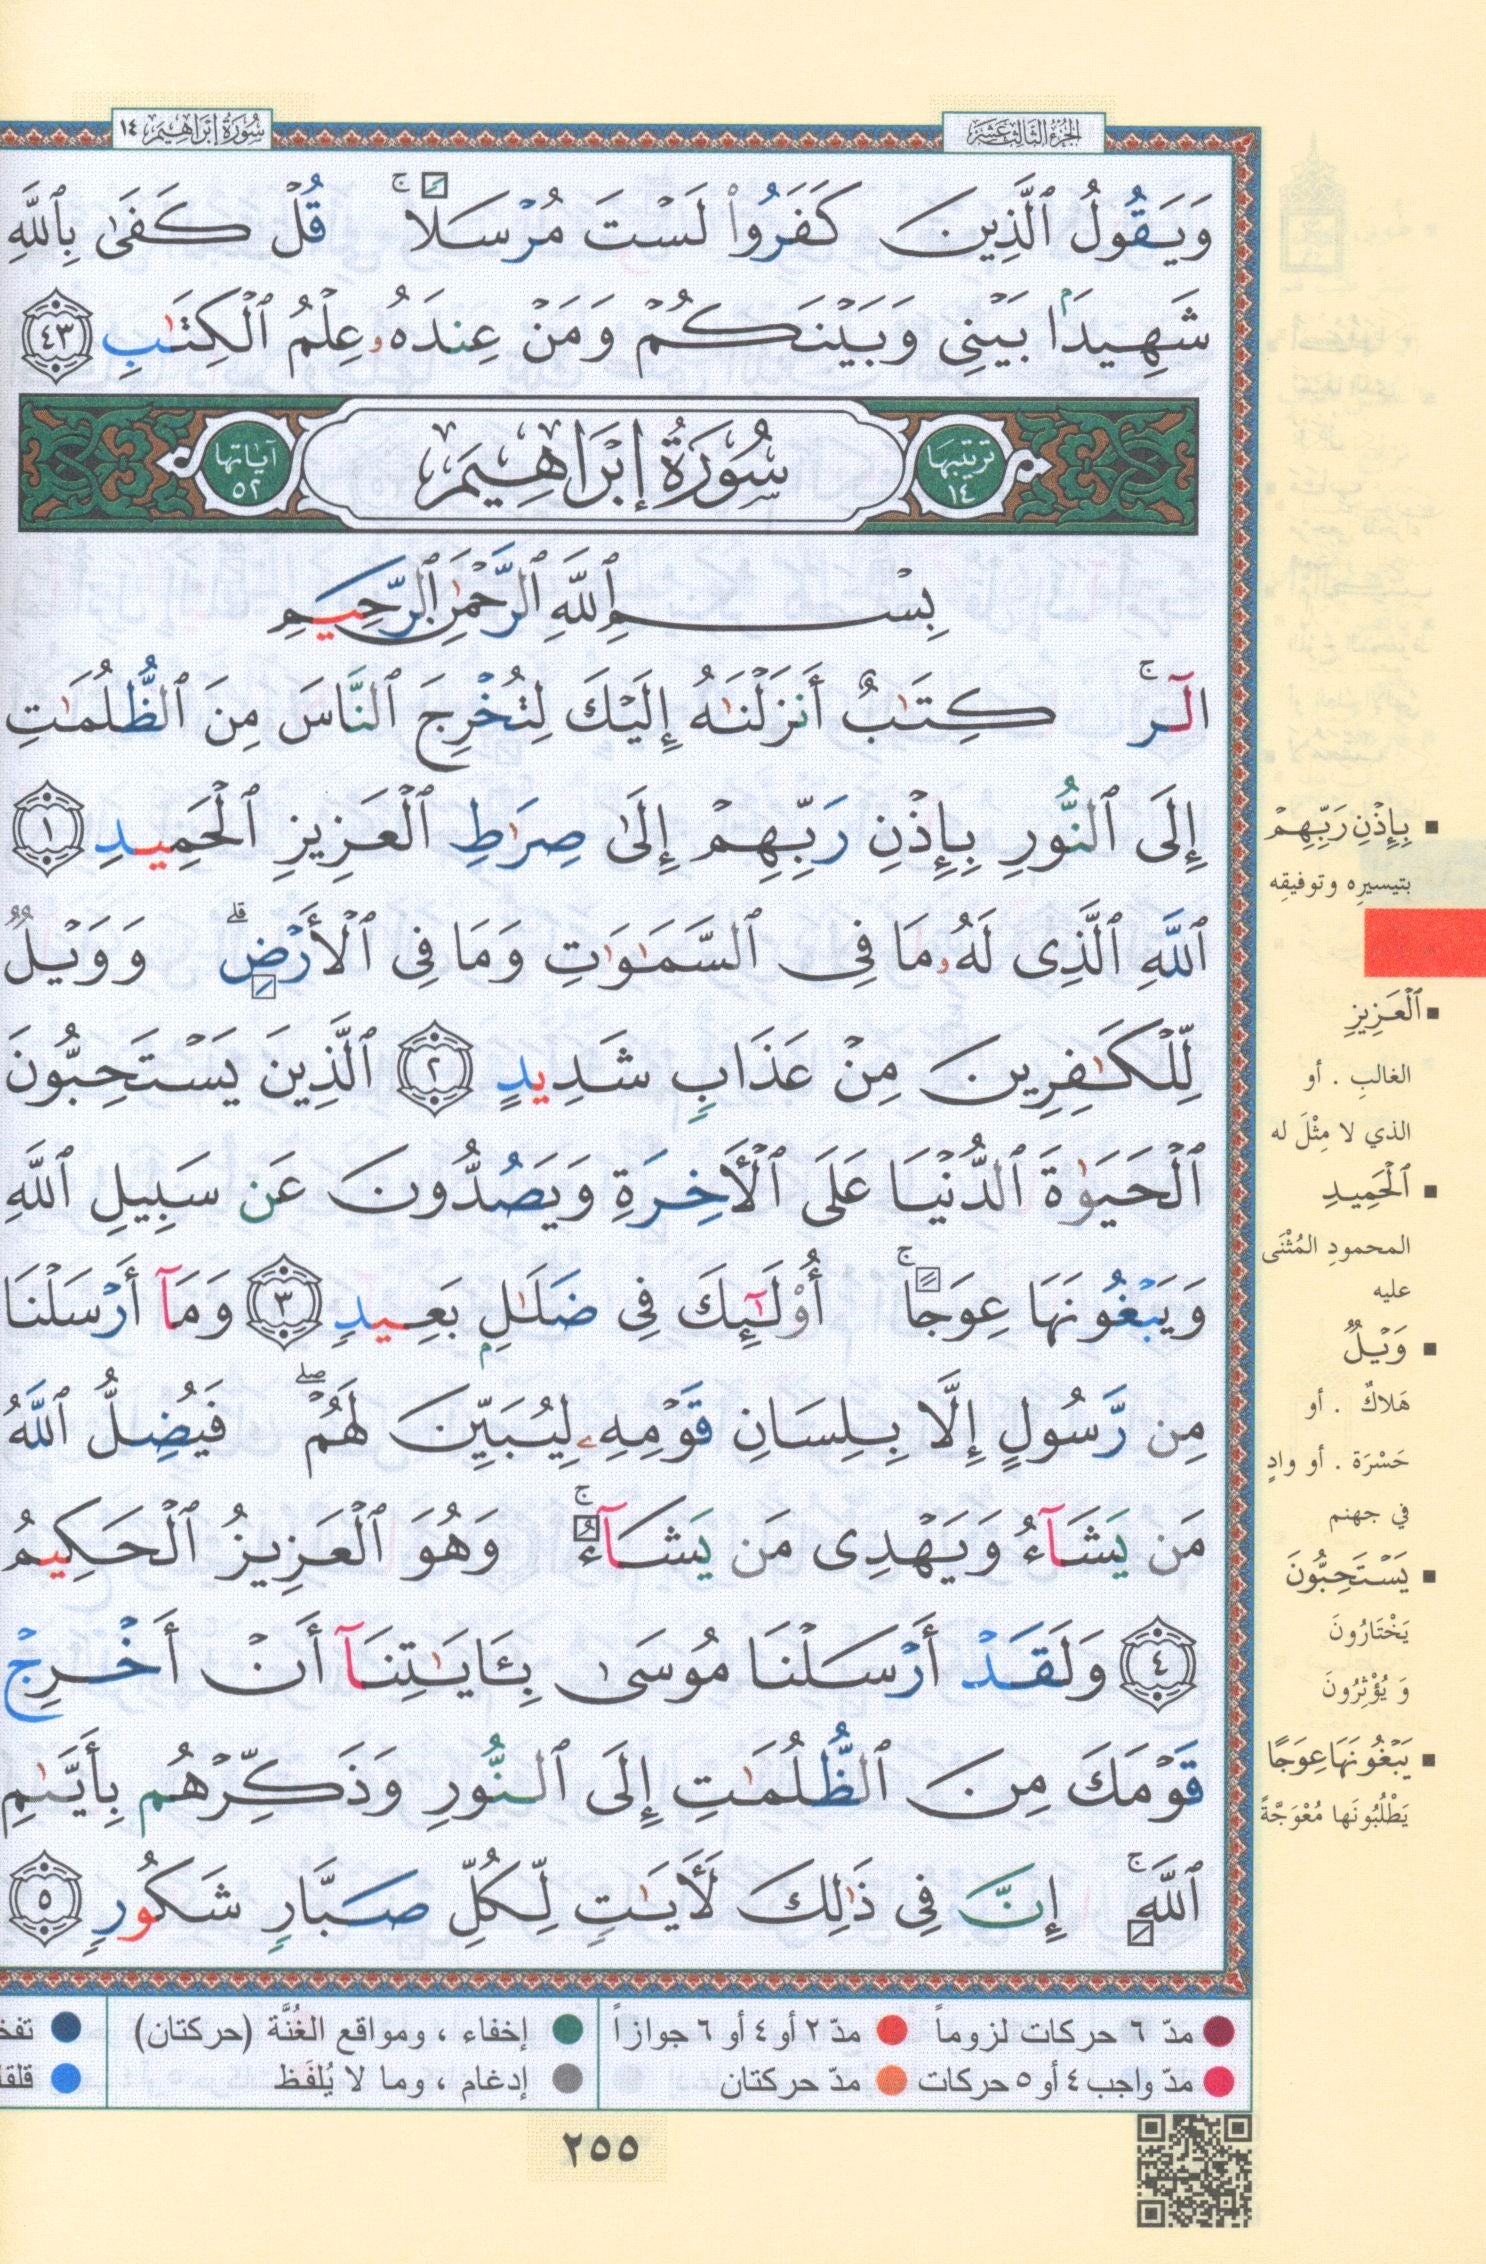 الجزء الثالث عشر
سورة إبراهيم ١٤
وَيَقُولُ ٱلَّذِينَ كَفَرُوا۟ لَسْتَ مُرْسَلًا ۚ قُلْ كَفَىٰ بِٱللَّهِ
شَهِيدًۢا بَيْنِى وَبَيْنَكُمْ وَمَنْ عِندَهُۥ عِلْمُ ٱلْكِتَـٰبِ ٤٣
ترتيبها ١٤
سُورَةُ إِبْرَاهِيمَ
آياتها ٥٢
بِسْمِ ٱللَّهِ ٱلرَّحْمَـٰنِ ٱلرَّحِيمِ
الٓر ۚ كِتَـٰبٌ أَنزَلْنَـٰهُ إِلَيْكَ لِتُخْرِجَ ٱلنَّاسَ مِنَ ٱلظُّلُمَـٰتِ
إِلَى ٱلنُّورِ بِإِذْنِ رَبِّهِمْ إِلَىٰ صِرَٰطِ ٱلْعَزِيزِ ٱلْحَمِيدِ ١
ٱللَّهِ ٱلَّذِى لَهُۥ مَا فِى ٱلسَّمَـٰوَٰتِ وَمَا فِى ٱلْأَرْضِ ۗ وَوَيْلٌ
لِّلْكَـٰفِرِينَ مِنْ عَذَابٍ شَدِيدٍ ٢ ٱلَّذِينَ يَسْتَحِبُّونَ
ٱلْحَيَوٰةَ ٱلدُّنْيَا عَلَى ٱلْأَخِرَةِ وَيَصُدُّونَ عَن سَبِيلِ ٱللَّهِ
وَيَبْغُونَهَا عِوَجًا ۚ أُو۟لَـٰٓئِكَ فِى ضَلَـٰلٍۭ بَعِيدٍ ٣ وَمَآ أَرْسَلْنَا
مِن رَّسُولٍ إِلَّا بِلِسَانِ قَوْمِهِۦ لِيُبَيِّنَ لَهُمْ ۖ فَيُضِلُّ ٱللَّهُ
مَن يَشَآءُ وَيَهْدِى مَن يَشَآءُ ۚ وَهُوَ ٱلْعَزِيزُ ٱلْحَكِيمُ
٤ وَلَقَدْ أَرْسَلْنَا مُوسَىٰ بِـَٔايَـٰتِنَآ أَنْ أَخْرِجْ
قَوْمَكَ مِنَ ٱلظُّلُمَـٰتِ إِلَى ٱلنُّورِ وَذَكِّرْهُم بِأَيَّىٰمِ
ٱللَّهِ ۚ إِنَّ فِى ذَٰلِكَ لَأَيَـٰتٍ لِّكُلِّ صَبَّارٍ شَكُورٍ ٥
بِإِذْنِ رَبِّهِمْ
بتيسيرِه وتوفيقِه
ٱلْعَزِيزِ
الغالبِ . أو
الذي لا مِثْلَ له
ٱلْحَمِيدِ
المحمودِ المُثْنَى
عليه
وَيْلٌ
هَلاكٌ . أو
حَسْرَة . أو وادٍ
في جهنم
يَسْتَحِبُّونَ
يَخْتَارُونَ
وَ يُؤْثِرُونَ
يَبْغُونَهَا عِوَجًا
يَطْلُبُونَها مُعْوَجَّةً
مدّ ٦ حركات لزوماً مدّ ٢ أو ٤ أو ٦ جوازاً إخفاء ، ومواقع الغُنَّة (حركتان)
مدّ واجب ٤ أو ٥ حركات مدّ حركتان إدغام ، وما لا يُلفَظ
٢٥٥